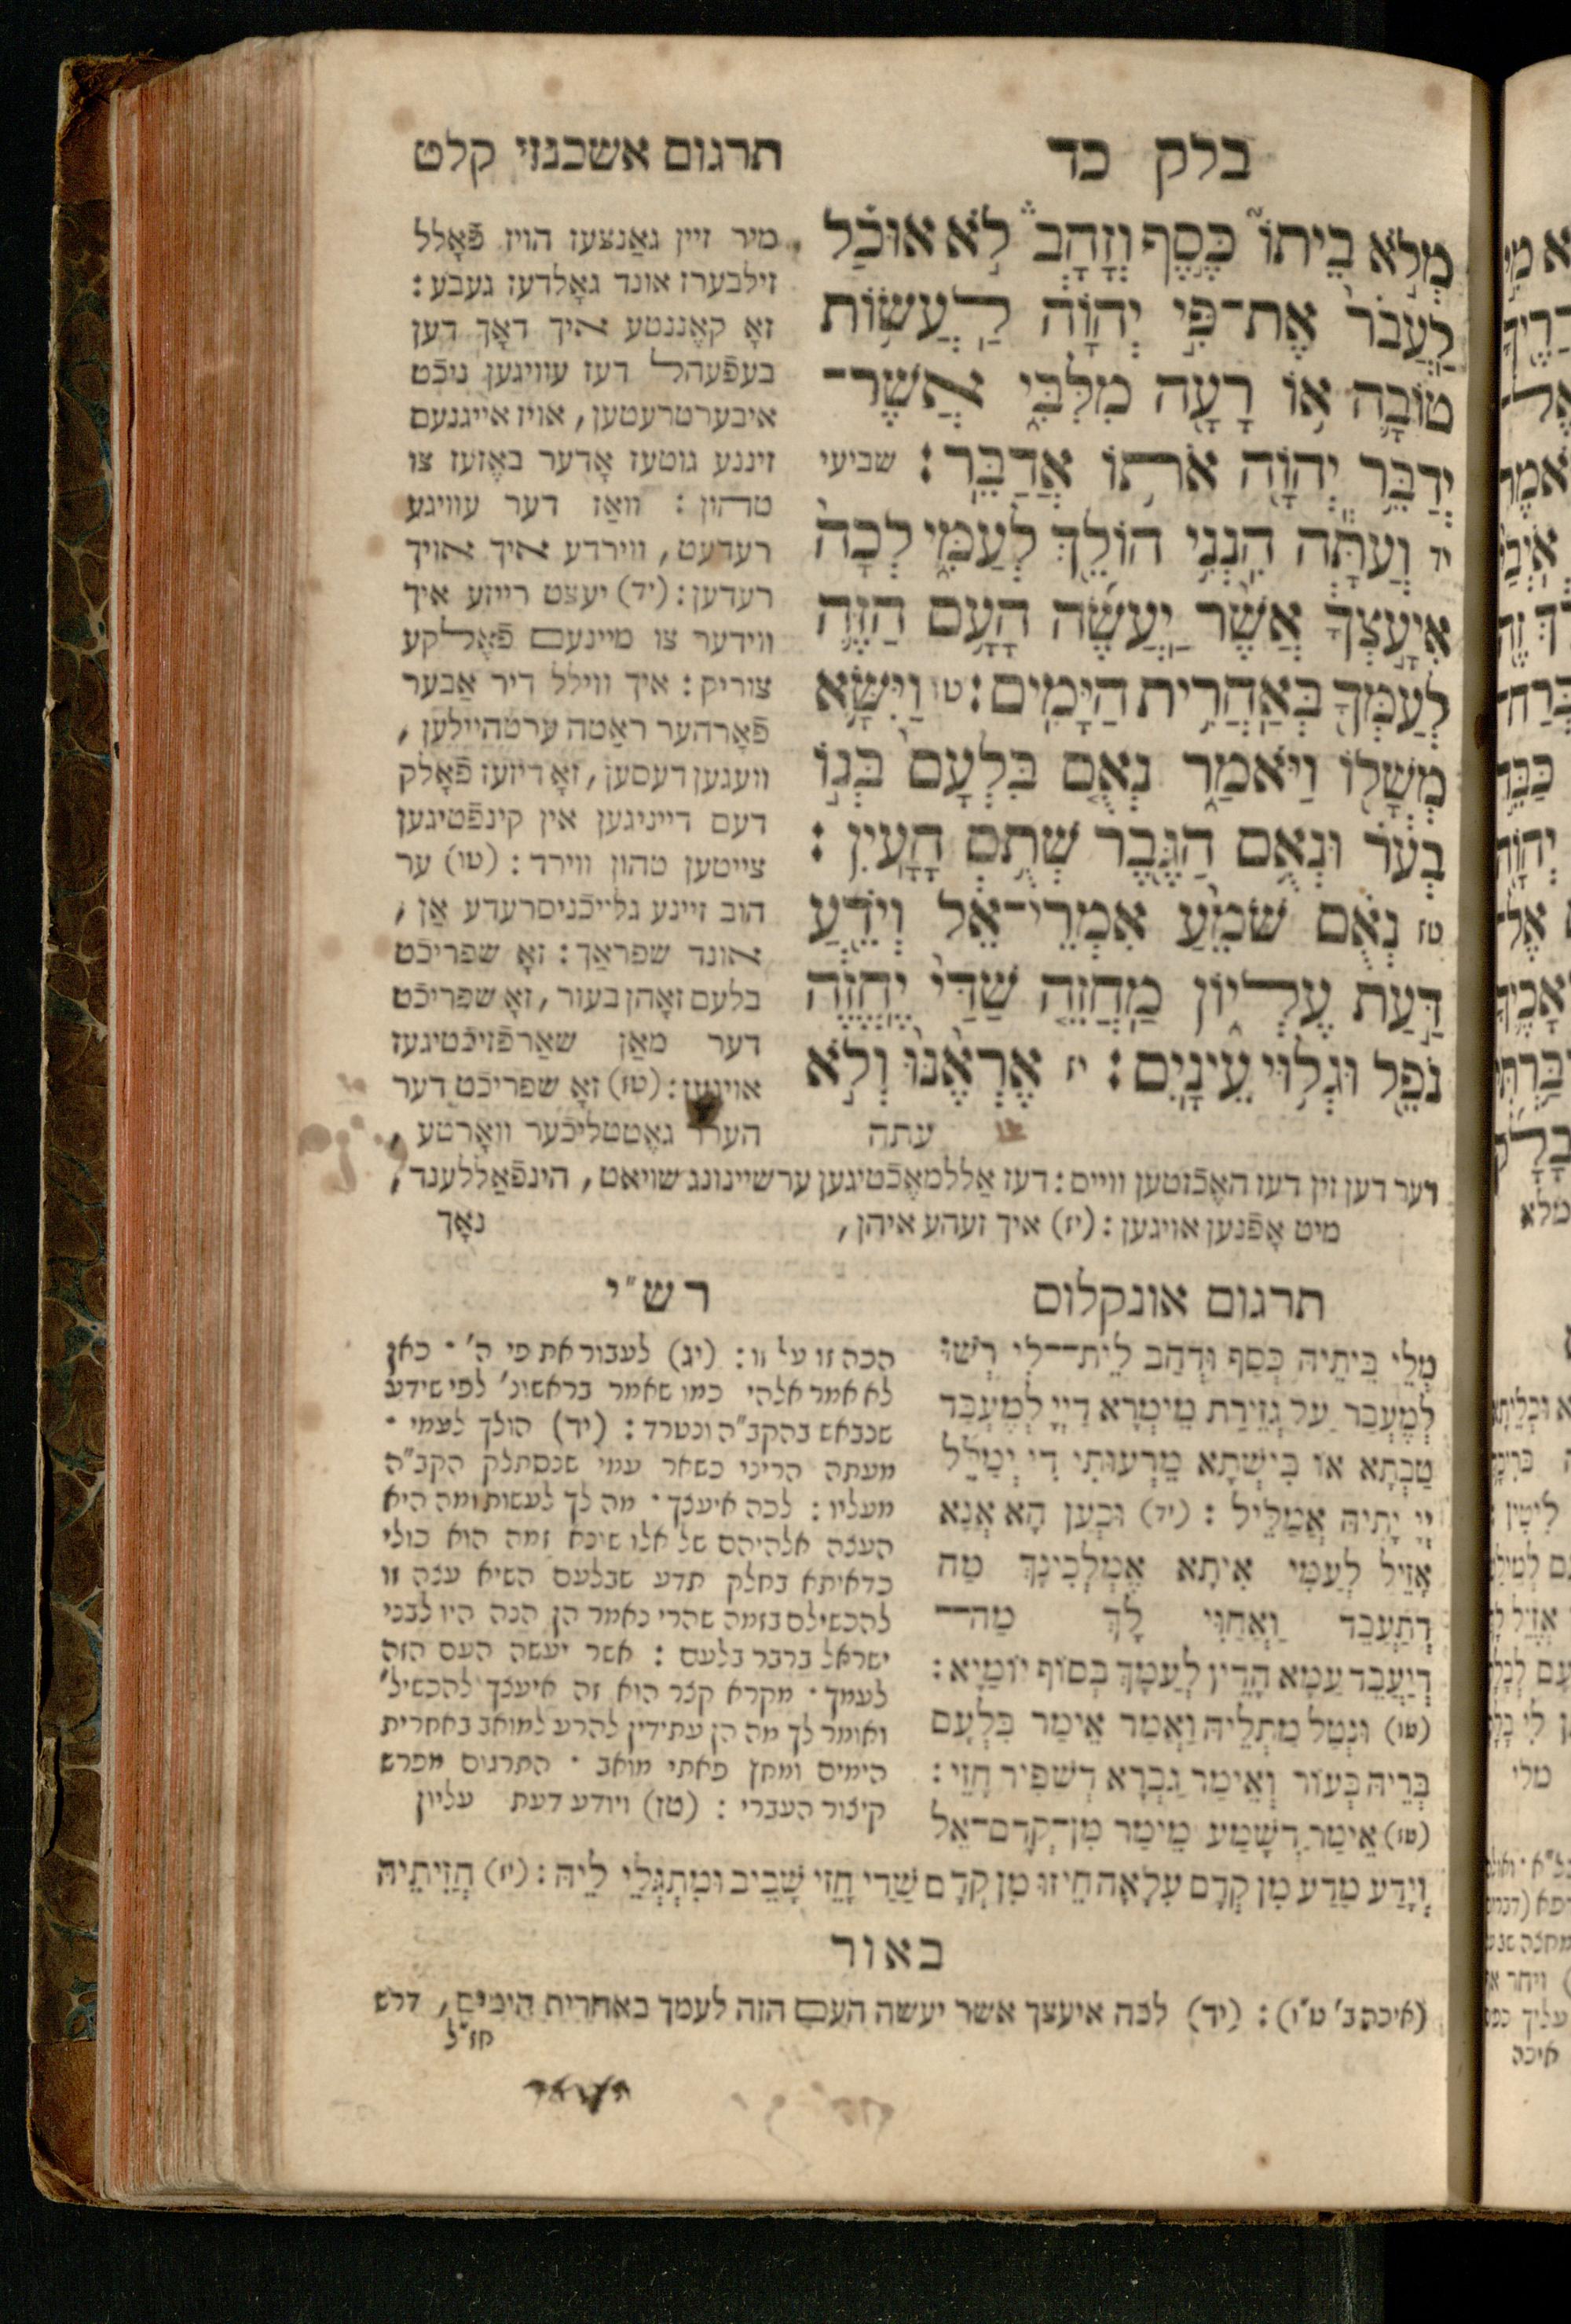 בלק כד
תרגום אשכנזי קלט
מְלֹא בֵיתוֹ כֶּסֶף וְזָהָב לֹא אוּכַל
לַעֲבֹר אֶת־פִּי יְהוָֹה לַעֲשׂוֹת
טוֹבָה אוֹ רָעָה מִלִּבִּי אֲשֶׁר־
יְדַבֵּר יְהוָֹה אֹתוֹ אֲדַבֵּר : שביעי
יד וְעַתָּה הִנְנִי הוֹלֵךְ לְעַמִּי לְכָה
אִיעָצְךָ אֲשֶׁר יַעֲשֶׂה הָעָם הַזֶּה
לְעַמְּךָ בְּאַחֲרִית הַיָּמִים : טו וַיִּשָּׂא
מְשָׁלוֹ וַיֹּאמַר נְאֻם בִּלְעָם בְּנוֹ
בְעֹר וּנְאֻם הַגֶּבֶר שְׁתֻם הָעָיִן :
טז נְאֻם שֹׁמֵעַ אִמְרֵי־אֵל וְיֹדֵעַ
דַּעַת עֶלְיוֹן מַחֲזֵה שַׁדַּי יֶחֱזֶה
נֹפֵל וּגְלוּי עֵינָיִם : יז אֶרְאֶנּוּ וְלֹא
עתה
מיר זיין גאַנצעז הויז פֿאָלל
זילבערז אונד גאָלדעז געבע :
זאָ קאֶננטע איך דאָך דען
בעפֿעהל דעז עוויגען ניכֿט
איבערטרעטען, אויז אייגנעם
זיננע גוטעז אָדער באֶזעז צו
טהון : וואַז דער עוויגע
רעדעט, ווירדע איך אויך
רעדען : (יד) יעצט רייזע איך
ווידער צו מיינעם פֿאָלקע
צוריק : איך ווילל דיר אַבער
פֿאָרהער ראַטה ערטהיילען,
וועגען דעסען, זאָ דיזעז פֿאָלק
דעם דייניגען אין קינפֿטיגען
צייטען טהון ווירד : (טו) ער
הוב זיינע גלייכֿניסרעדע אַן,
אונד שפראַך : זאָ שפריכֿט
בלעם זאָהן בעור, זאָ שפריכֿט
דער מאַן שאַרפֿזיכֿטיגעז
אויגען : (טז) זאָ שפריכֿט דער
הערר גאֶטטליכֿער וואָרטע,
דער דען זין דעז האֶכֿזטען ווייס : דעז אַללמאֶכֿטיגען ערשיינונג שויאט, הינפֿאַללענד,
מיט אָפֿנען אויגען : (יז) איך זעהע איהן, נאָך
תרגום אונקלוס
מְלֵי בֵיתֵיהּ כְּסַף וּדְהַב לֵית־־לִי רְשׁוּ
לְמֶעְבַר עַל גְזֵירַת מֵימְרָא דַיְיָ לְמֶעְבַּד
טַבְתָא אוֹ בִישְׁתָא מֵרְעוּתִי דִי יְמַלֵּל
יְיָ יָתֵיהּ אֲמַלֵּיל : (יד) וּכְעַן הָא אֲנָא
אָזֵיל לְעַמִּי אִיתָא אֶמְלְכִינָךְ מַה
דְתַעְבֵּד וַאֲחַוֵּי לָךְ מַה־־
דְיַעְבֵּד עַמָא הָדֵין לְעַמָּךְ בְּסוֹף יוֹמַיָא :
(טו) וּנְטַל מַתְלֵיהּ וַאֲמַר אֵימַר בִּלְעָם
בְּרֵיהּ בְעוֹר וְאֵימַר גַבְרָא דְשַׁפִּיר חָזֵי :
(טז) אֵימַר דְשָׁמַע מֵימַר מִן־קֳדָם־אֵל
וְיָדַע מַדַע מִן קֳדָם עִלָּאָה חֵיזוּ מִן קֳדָם שַׁדַּי חָזֵי שָׁכֵיב וּמִתְגְּלֵי לֵיהּ : (יז) חֲזֵיתֵיהּ
רש״י
הכה זו על זו : (יג) לעבור את פי ה' · כאן
לא אמר אלהי כמו שאמר בראשונ' לפי שידע
שנבאש בהקב״ה ונטרד : (יד) הולך לעמי ·
מעתה הריני כשאר עמי שנסתלק הקב״ה
מעליו : לכה איעצך · מה לך לעשות ומה היא
העצה אלהיהם של אלו שונא זמה הוא כולי
כדאיתא בחלק תדע שבלעם השיא עצה זו
להכשילם בזמה שהרי נאמר הן הנה היו לבני
ישראל בדבר בלעם : אשר יעשה העם הזה
לעמך · מקרא קצר הוא זה איעצך להכשיל'
ואומר לך מה הן עתידין להרע למואב באחרית
הימים ומחץ פאתי מואב · התרגום מפרש
קיצור העברי : (טז) ויודע דעת עליון
באור
(איכה ב' ט״ו) : (יד) לכה איעצך אשר יעשה העם הזה לעמך באחרית הימים, דרש
חז״ל